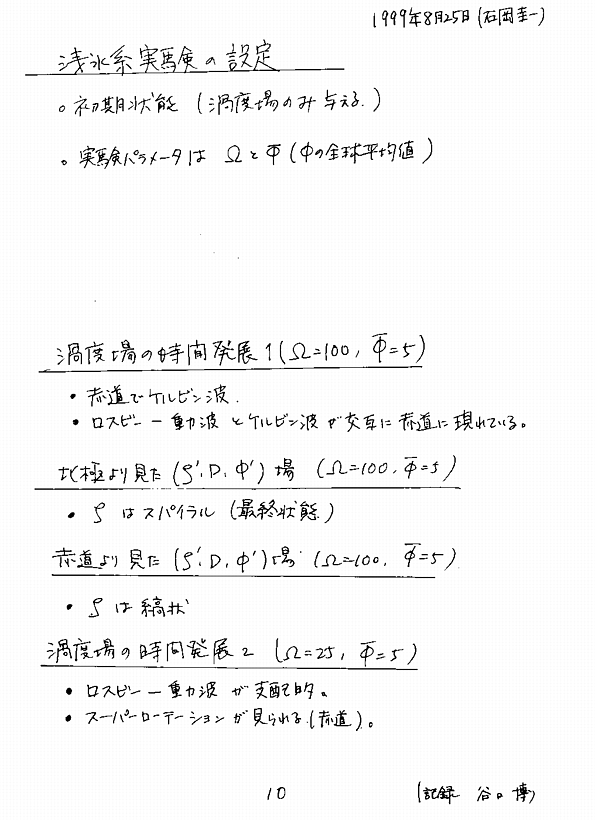 1999年8月25日(石岡圭一)
浅水系実験の設定
○ 初期状態 (渦度場のみ与える.)
○ 実験パラメータは Ω と Φ̅ (Φの全球平均値)
渦度場の時間発展1(Ω=100, Φ̅=5)
• 赤道でケルビン波.
• ロスビー−重力波とケルビン波が交互に赤道に現れている。
北極より見た (ζ', D, Φ') 場 (Ω=100, Φ̅=5)
• ζ はスパイラル (最終状態.)
赤道より見た (ζ', D, Φ') 場 (Ω=100, Φ̅=5)
• ζ は縞状
渦度場の時間発展2 (Ω=25, Φ̅=5)
• ロスビー−重力波が支配的。
• スーパーローテーションが見られる.(赤道)。
10
(記録 谷口 博)